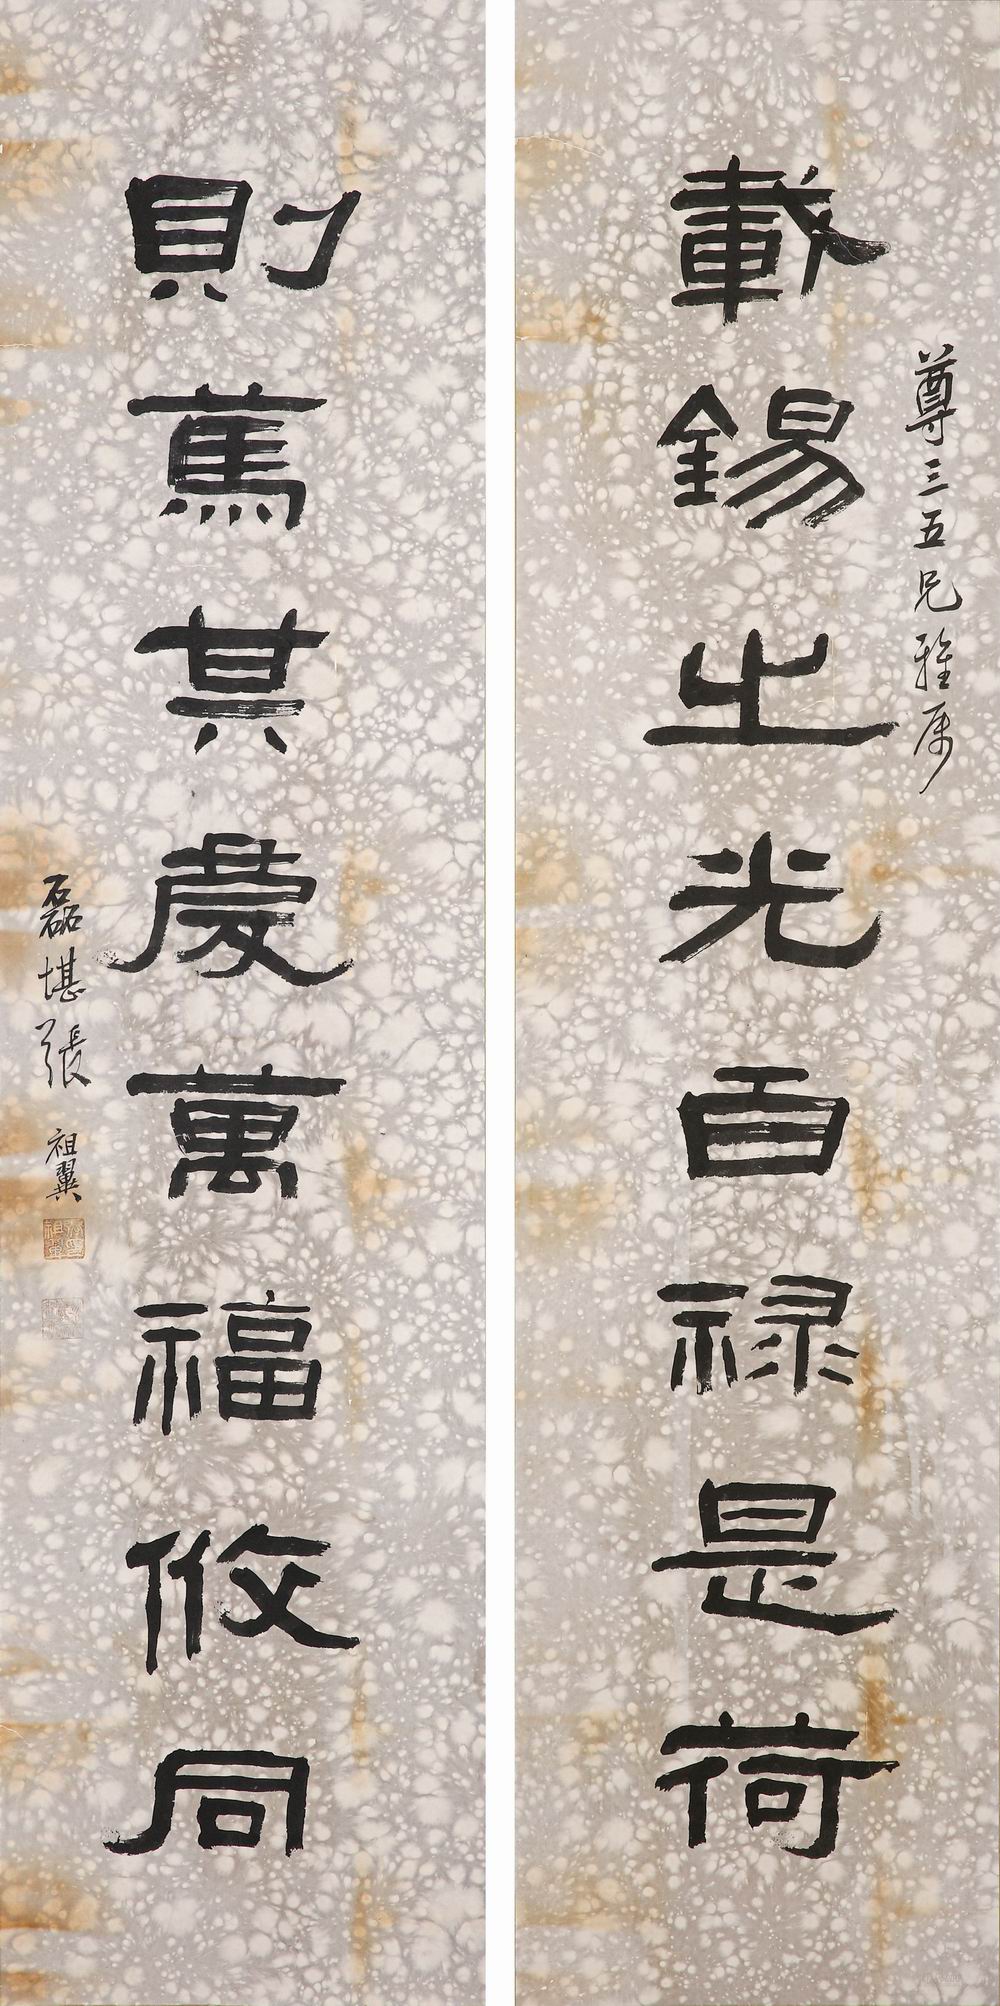 尊三五兄雅属
載錫之光百祿是荷
則篤其慶萬福攸同
磊堪張祖翼